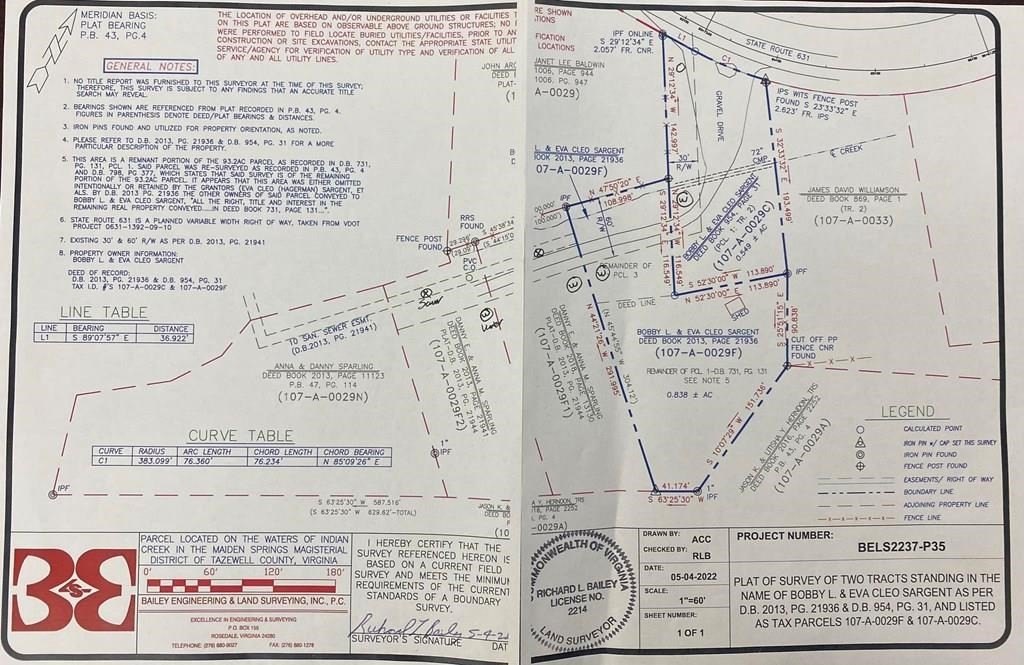 MERIDIAN BASIS:
PLAT BEARING
P.B. 43, PG.4
THE LOCATION OF OVERHEAD AND/OR UNDERGROUND UTILITIES OR FACILITIES
ON THIS PLAT ARE BASED ON OBSERVABLE ABOVE GROUND STRUCTURES;
WERE PERFORMED TO FIELD LOCATE BURIED UTILITIES/FACILITIES, PRIOR TO
CONSTRUCTION OR SITE EXCAVATIONS, CONTACT THE APPROPRIATE STATE
SERVICE/AGENCY FOR VERIFICATION OF UTILITY TYPE AND VERIFICATION OF ALL
OF ANY AND ALL UTILITY LINES.
GENERAL NOTES:
1. NO TITLE REPORT WAS FURNISHED TO THIS SURVEYOR AT THE TIME OF THIS SURVEY;
THEREFORE, THIS SURVEY IS SUBJECT TO ANY FINDINGS THAT AN ACCURATE TITLE
SEARCH MAY REVEAL.
2. BEARINGS SHOWN ARE REFERENCED FROM PLAT RECORDED IN P.B. 43, PG. 4.
FIGURES IN PARENTHESIS DENOTE DEED/PLAT BEARINGS & DISTANCES.
3. IRON PINS FOUND AND UTILIZED FOR PROPERTY ORIENTATION, AS NOTED.
4. PLEASE REFER TO D.B. 2013, PG. 21936 & D.B. 954, PG. 31 FOR A MORE
PARTICULAR DESCRIPTION OF THE PROPERTY.
5. THIS AREA IS A REMNANT PORTION OF THE 93.2AC PARCEL AS RECORDED IN D.B. 731,
PG. 131, PCL. 1; SAID PARCEL WAS RE-SURVEYED AS RECORDED IN P.B. 43, PG. 4
AND D.B. 798, PG 377, WHICH STATES THAT SAID SURVEY IS OF THE REMAINING
PORTION OF THE 93.2AC PARCEL. IT APPEARS THAT THIS AREA WAS EITHER OMITTED
INTENTIONALLY OR RETAINED BY THE GRANTORS (EVA CLEO (HAGERMAN) SARGENT, ET
ALS. BY D.B. 2013 PG 21936 THE OTHER OWNERS OF SAID PARCEL CONVEYED TO
BOBBY L. & EVA CLEO SARGENT, "ALL THE RIGHT, TITLE AND INTEREST IN THE
REMAINING REAL PROPERTY CONVEYED.....IN DEED BOOK 731, PAGE 131...".
6. STATE ROUTE 631 IS A PLANNED VARIABLE WIDTH RIGHT OF WAY, TAKEN FROM VDOT
PROJECT 0631-1392-09-10
7. EXISTING 30' & 60' R/W AS PER D.B. 2013, PG. 21941
8. PROPERTY OWNER INFORMATION:
BOBBY L. & EVA CLEO SARGENT
DEED OF RECORD:
D.B. 2013, PG. 21936 & D.B. 954, PG. 31
TAX I.D. #'S 107-A-0029C & 107-A-0029F
LINE TABLE
LINE BEARING DISTANCE
L1 S 89°07'57" E 36.922'
JOHN
DEED
PLAT-
RRS
FOUND
FENCE POST
FOUND
29.296'
(29.09')
S 45°38'34"
(S 44°15'0
PVC
C.O.
Sewer
10' SAN. SEWER ESMT.
(D.B.2013, PG. 21941)
ANNA & DANNY SPARLING
DEED BOOK 2013, PAGE 11123
P.B. 47, PG. 114
(107-A-0029N)
DANNY E. & ANNA M. SPARLING
DEED BOOK 2013, PAGE 21941
PLAT-D.B. 2013, PG. 21944
(107-A-0029F2)
CURVE TABLE
CURVE RADIUS ARC LENGTH CHORD LENGTH CHORD BEARING
C1 383.099' 76.360' 76.234' N 85°09'26" E
1"
IPF
IPF
S 63°25'30" W 587.516'
(S 63°25'30" W 629.62'-TOTAL)
JASON K. &
PARCEL LOCATED ON THE WATERS OF INDIAN
CREEK IN THE MAIDEN SPRINGS MAGISTERIAL
DISTRICT OF TAZEWELL COUNTY, VIRGINIA
0' 60' 120' 180'
BAILEY ENGINEERING & LAND SURVEYING, INC., P.C.
EXCELLENCE IN ENGINEERING & SURVEYING
P.O. BOX 155
ROSEDALE, VIRGINIA 24280
TELEPHONE: (276) 880-9027 FAX: (276) 880-1278
I HEREBY CERTIFY THAT THE
SURVEY REFERENCED HEREON IS
BASED ON A CURRENT FIELD
SURVEY AND MEETS THE MINIMUM
REQUIREMENTS OF THE CURRENT
STANDARDS OF A BOUNDARY
SURVEY.
Richard L Bailey 5-4-2
SURVEYOR'S SIGNATURE DAT
RE SHOWN
FICATION
LOCATIONS
IPF ONLINE
S 29°12'34" E
2.057' FR. CNR.
L1
C1
STATE ROUTE 631
JANET LEE BALDWIN
1006, PAGE 944
1006, PG. 947
A-0029)
IPS WITS FENCE POST
FOUND S 23°33'32" E
2.623' FR. IPS
GRAVEL DRIVE
N 29°12'34" W 142.997'
30'
R/W
72"
CMP
CREEK
S 32°33'32" E 93.499'
L. & EVA CLEO SARGENT
BOOK 2013, PAGE 21936
07-A-0029F)
N 47°50'20" E
108.998'
60'
R/W
IPF
3
N 29°12'34" W 116.549'
S 29°12'34" E 116.549'
BOBBY L. & EVA CLEO SARGENT
DEED BOOK 954, PAGE 31
(PCL 1: TR. 2)
(107-A-0029C)
0.549 ± AC
JAMES DAVID WILLIAMSON
DEED BOOK 869, PAGE 1
(TR. 2)
(107-A-0033)
REMAINDER OF
PCL 3
3
3
DEED LINE
S 52°30'00" W 113.890'
N 52°30'00" E 113.890'
IPF
SHED
S 25°51'15" E 90.838'
BOBBY L. & EVA CLEO SARGENT
DEED BOOK 2013, PAGE 21936
(107-A-0029F)
REMAINDER OF PCL 1-D.B. 731, PG. 131
SEE NOTE 5
0.838 ± AC
CUT OFF PP
FENCE CNR
FOUND
DANNY E. & ANNA M. SPARLING
PLAT-D.B. 2013, PG. 21944
(107-A-0029F1)
N 44°21'28" W 291.995'
304.12')
S 10°07'29" W 151.736'
JASON K. & LITISHA Y. HERNDON, TRS
DEED BOOK 2016, PAGE 2252
P.B. 43, PG. 4
(107-A-0029A)
41.174'
S 63°25'30" W
1"
IPF
A Y. HERNDON, TRS
PG. 4
-0029A)
LEGEND
CALCULATED POINT
IRON PIN w/ CAP SET THIS SURVEY
IRON PIN FOUND
FENCE POST FOUND
EASEMENTS/ RIGHT OF WAY
BOUNDARY LINE
ADJOINING PROPERTY LINE
FENCE LINE
COMMONWEALTH OF VIRGINIA
RICHARD L. BAILEY
LICENSE NO.
2214
LAND SURVEYOR
DRAWN BY: ACC
CHECKED BY: RLB
DATE:
05-04-2022
SCALE:
1"=60'
SHEET NUMBER:
1 OF 1
PROJECT NUMBER:
BELS2237-P35
PLAT OF SURVEY OF TWO TRACTS STANDING IN THE
NAME OF BOBBY L. & EVA CLEO SARGENT AS PER
D.B. 2013, PG. 21936 & D.B. 954, PG. 31, AND LISTED
AS TAX PARCELS 107-A-0029F & 107-A-0029C.